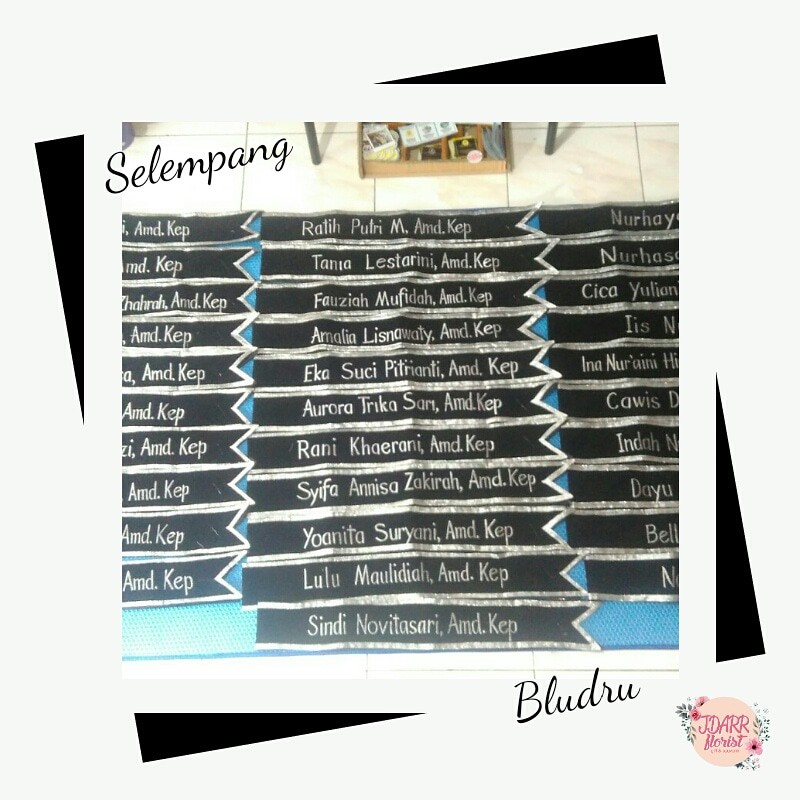 Selempang
i, Amd.Kep
Amd. Kep
Zhahrah, Amd.Kep
, Amd.Kep
a, Amd.Kep
Amd. Kep
zi, Amd.Kep
, Amd. Kep
Amd. Kep
Amd. Kep
Ratih Putri M. Amd.Kep
Tania Lestarini, Amd.Kep
Fauziah Mufidah, Amd.Kep
Amalia Lisnawaty, Amd.Kep
Eka Suci Pitrianti, Amd. Kep
Aurora Trika Sari, Amd.Kep
Rani Khaerani, Amd.Kep
Syifa Annisa Zakirah, Amd.Kep
Yoanita Suryani, Amd. Kep
Lulu Maulidiah, Amd. Kep
Sindi Novitasari, Amd.Kep
Nurhay
Nurhas
Cica Yulian
Iis N
Ina Nur'aini Hi
Cawis D
Indah N
Dayu
Bell
N
Bludru
JDARR
florist